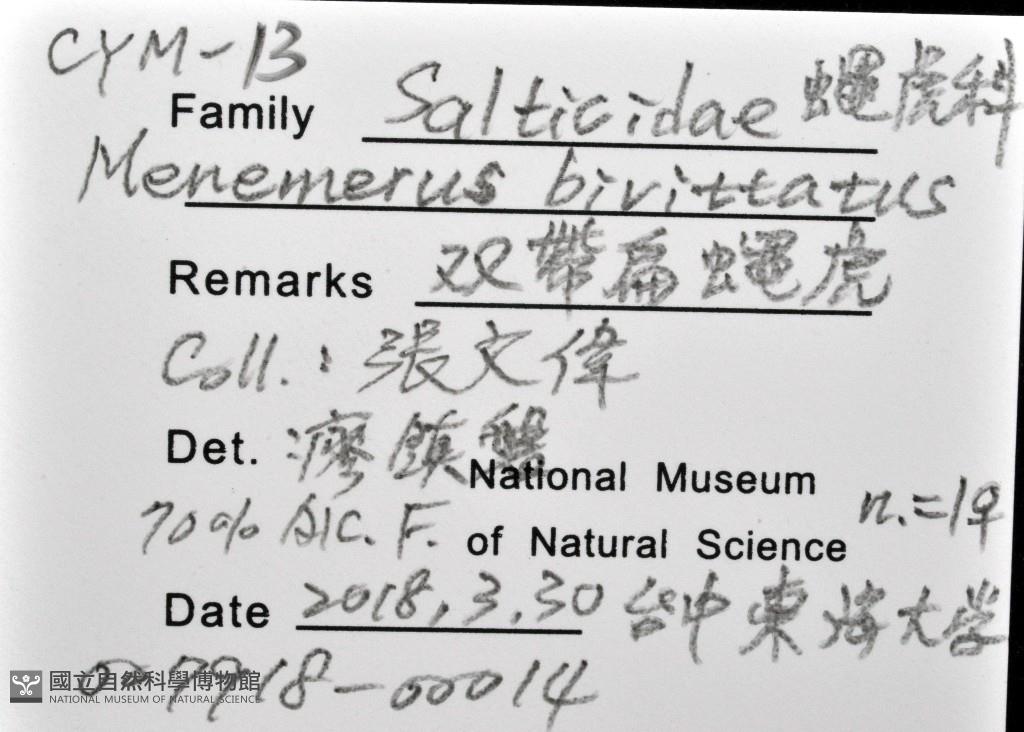 CYM-13
Family Salticidae 蠅虎科
Menemerus bivittatus
Remarks 双帶扁蠅虎
Coll.: 張文偉
Det. 廖鎮磐
National Museum
70% Alc. F. of Natural Science n.=1♀
Date 2018.3.30 台中東海大学
007918-00014
國立自然科學博物館
NATIONAL MUSEUM OF NATURAL SCIENCE